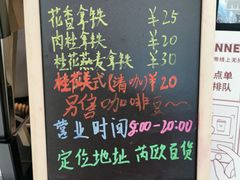 花香拿铁 ¥25
肉桂拿铁 ¥20
桂花燕麦拿铁 ¥30
桂花美式(清咖) ¥20
另售咖啡豆~
营业时间8:00-20:00
定位地址 芮欧百货
NNE
点单
排队